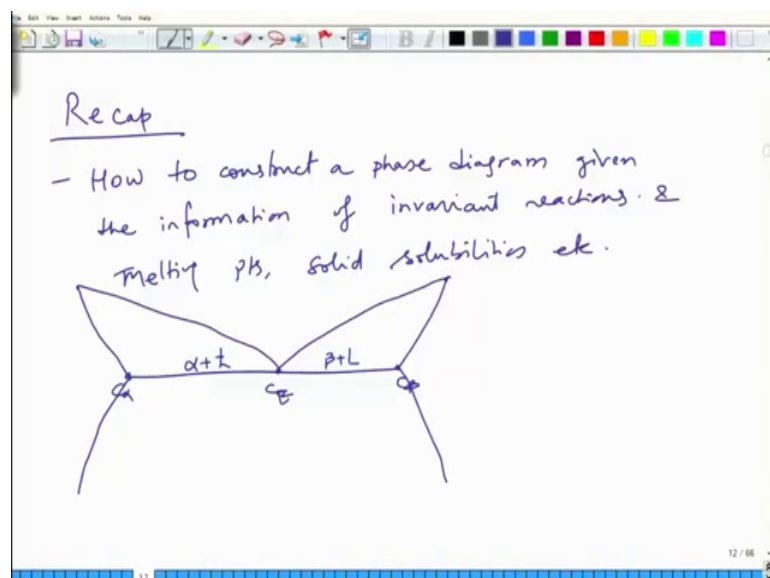 Edit View Insert Actions Tools Help
B I
Recap
– How to construct a phase diagram given
the information of invariant reactions. &
melting pts, solid solubilities etc.
α+L β+L
Cα CE Cβ
12 / 66